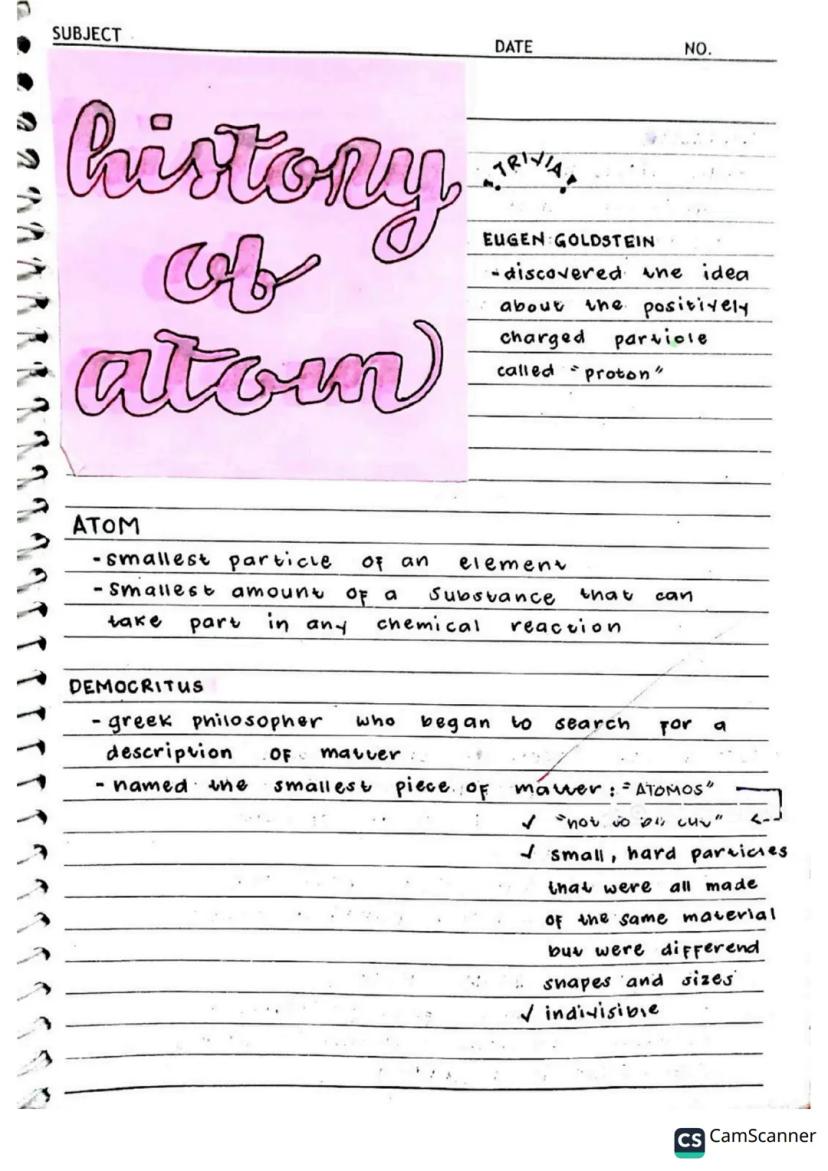 SUBJECT
DATE NO.
history
of
atom
! TRIVIA !
EUGEN GOLDSTEIN
- discovered the idea
about the positively
charged particle
called "proton"
ATOM
- smallest particle of an element
- smallest amount of a substance that can
take part in any chemical reaction
DEMOCRITUS
- greek philosopher who began to search for a
description of matter
- named the smallest piece of matter : "ATOMOS"
✓ "not to be cut"
✓ small, hard particles
that were all made
of the same material
but were differend
shapes and sizes
✓ indivisible
CS CamScanner